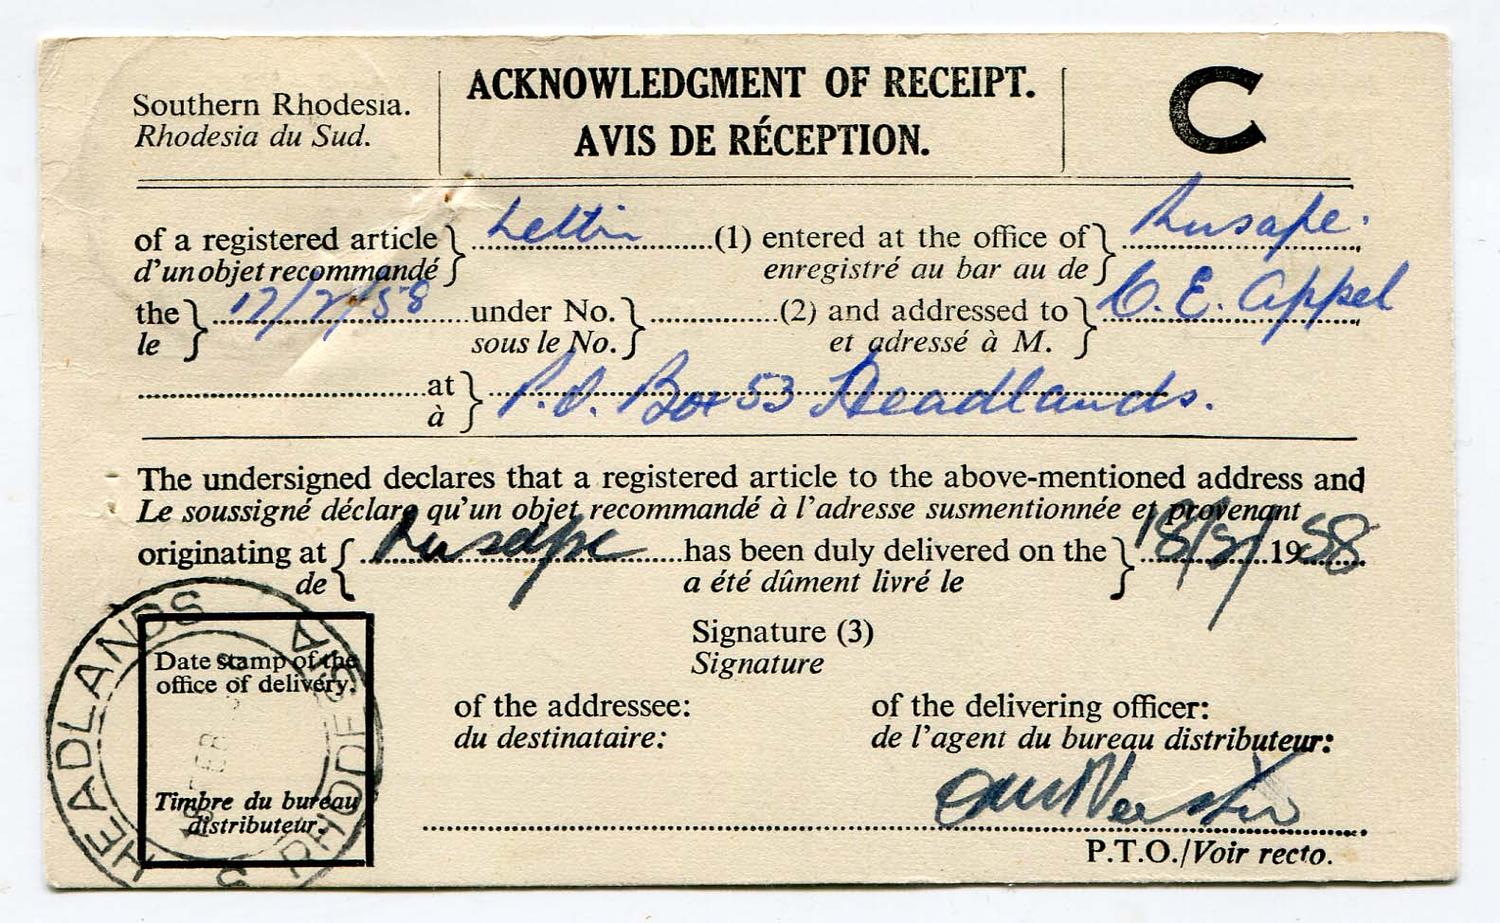 Southern Rhodesia.
Rhodesia du Sud.
ACKNOWLEDGMENT OF RECEIPT.
AVIS DE RÉCEPTION.
C
of a registered article } Letter (1) entered at the office of } Rusape.
d'un objet recommandé enregistré au bar au de
the } 17/2/58 under No. } (2) and addressed to } C. E. Appel
le sous le No. et adressé à M.
at } P.O. Box 53 Headlands.
à
The undersigned declares that a registered article to the above-mentioned address and
Le soussigné déclare qu'un objet recommandé à l'adresse susmentionnée et provenant
originating at { Rusape has been duly delivered on the } 18/2/1958
de a été dûment livré le
Signature (3)
Signature
of the addressee: of the delivering officer:
du destinataire: de l'agent du bureau distributeur:
Date stamp of the
office of delivery.
Timbre du bureau
distributeur.
HEADLANDS
S. RHODESIA
18 FEB
P.T.O./Voir recto.